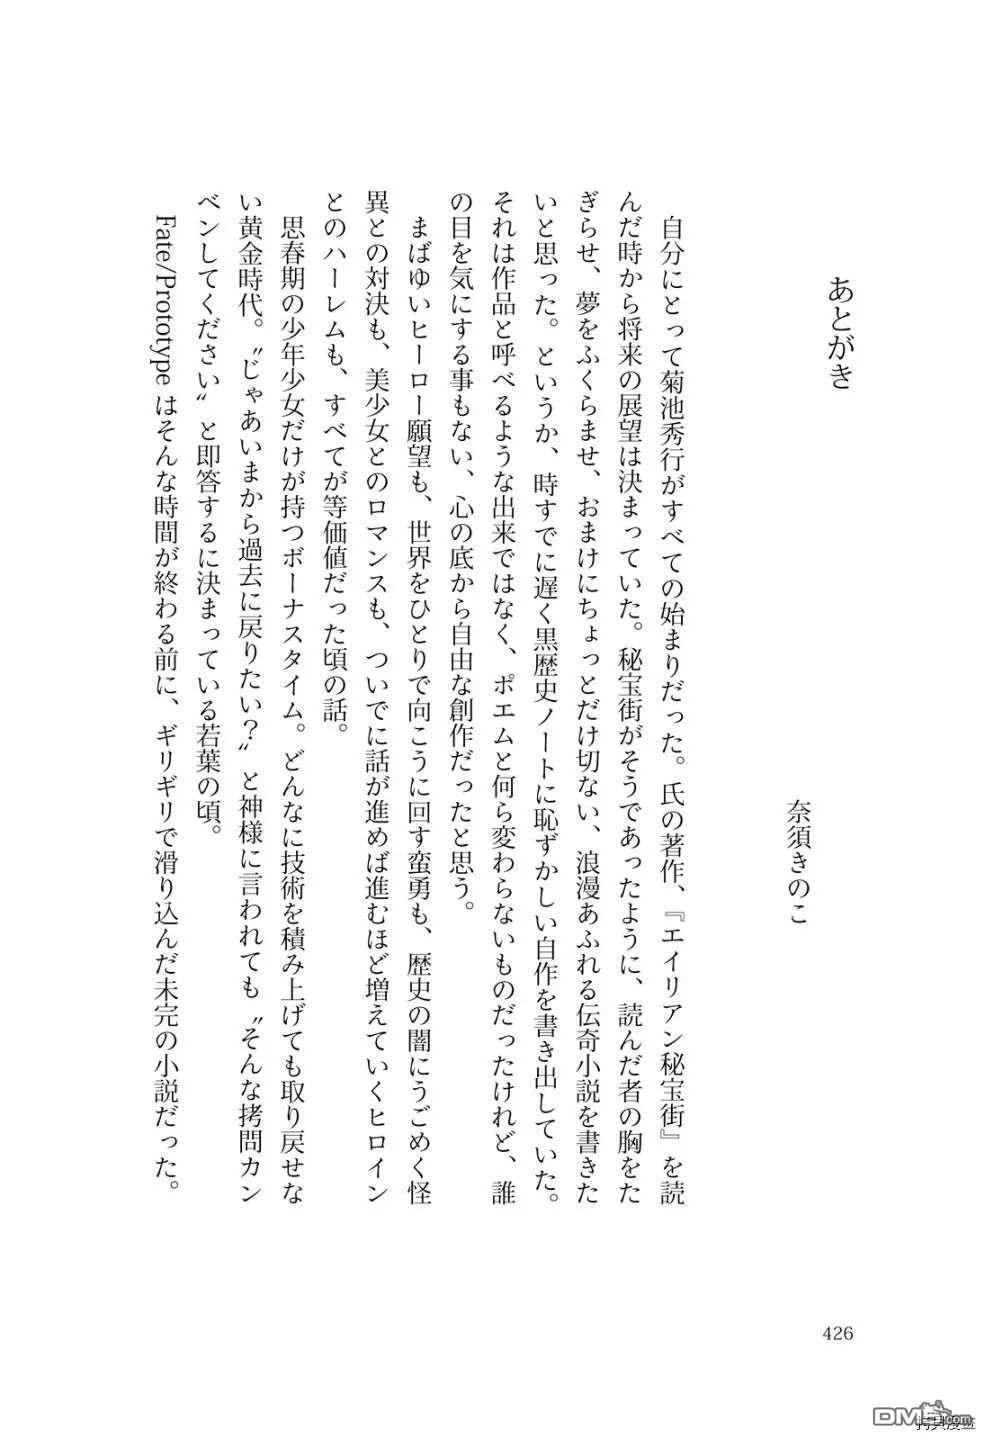 あとがき
奈須きのこ
　自分にとって菊池秀行がすべての始まりだった。氏の著作、『エイリアン秘宝街』を読
んだ時から将来の展望は決まっていた。秘宝街がそうであったように、読んだ者の胸をた
ぎらせ、夢をふくらませ、おまけにちょっとだけ切ない、浪漫あふれる伝奇小説を書きた
いと思った。というか、時すでに遅く黒歴史ノートに恥ずかしい自作を書き出していた。
それは作品と呼べるような出来ではなく、ポエムと何ら変わらないものだったけれど、誰
の目を気にする事もない、心の底から自由な創作だったと思う。
　まばゆいヒーロー願望も、世界をひとりで向こうに回す蛮勇も、歴史の闇にうごめく怪
異との対決も、美少女とのロマンスも、ついでに話が進めば進むほど増えていくヒロイン
とのハーレムも、すべてが等価値だった頃の話。
　思春期の少年少女だけが持つボーナスタイム。どんなに技術を積み上げても取り戻せな
い黄金時代。〝じゃあいまから過去に戻りたい？〟と神様に言われても〝そんな拷問カン
ベンしてください〟と即答するに決まっている若葉の頃。
　Fate/Prototype はそんな時間が終わる前に、ギリギリで滑り込んだ未完の小説だった。
426
DM5.com
拷貝漫畫